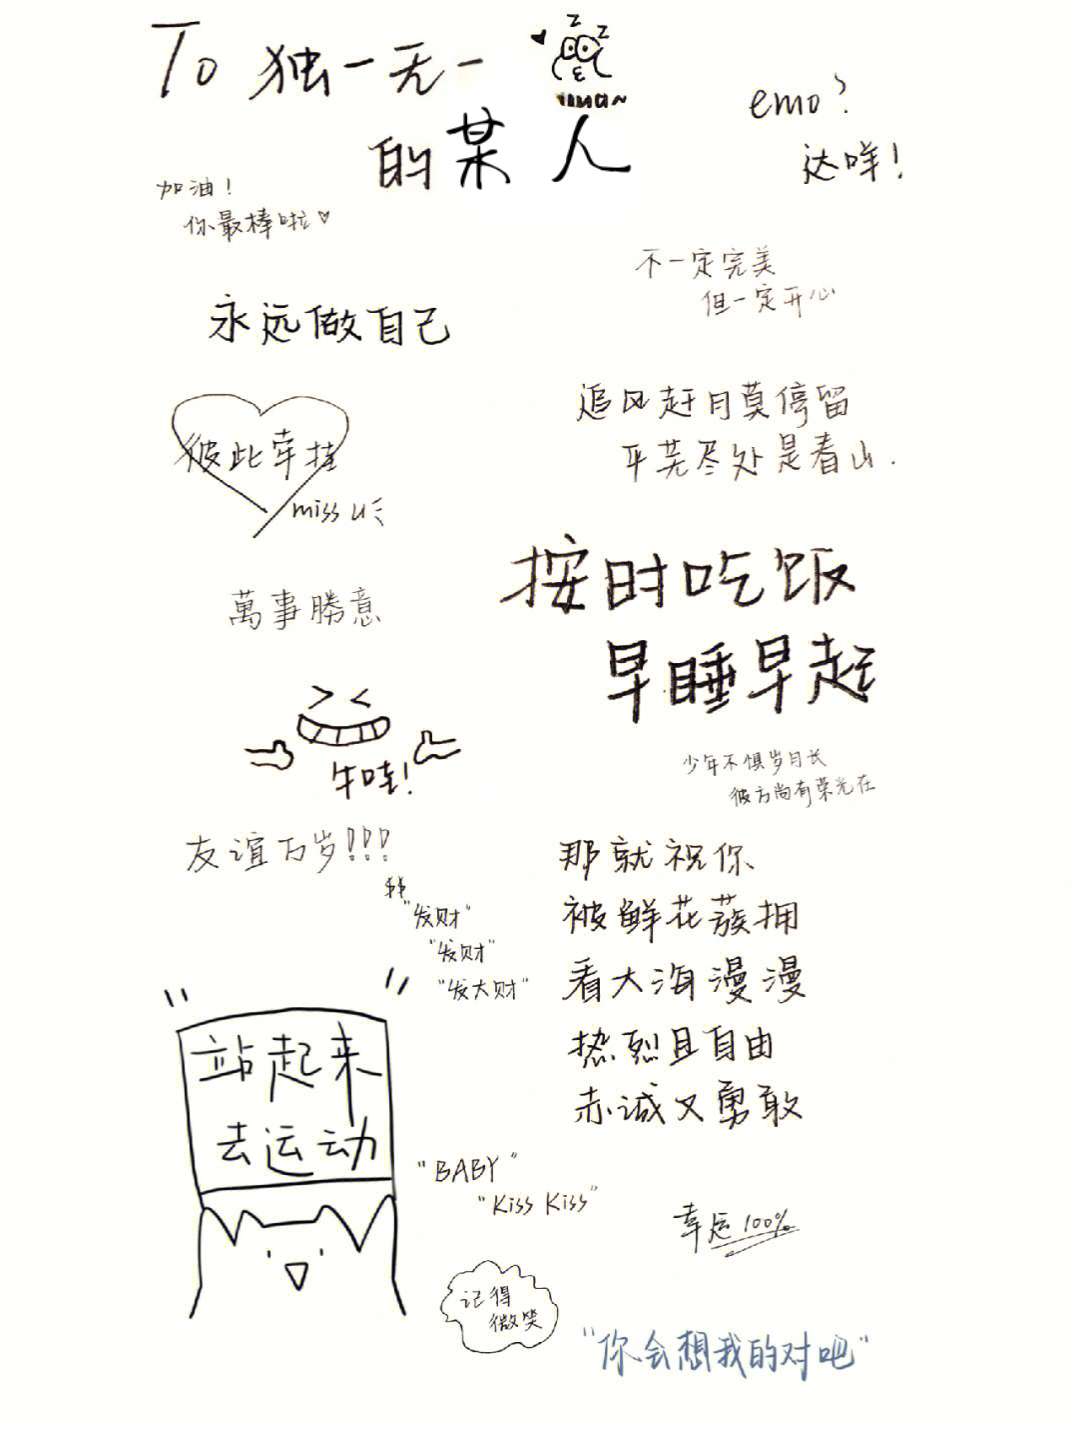 To 独一无一
的某人
emo?
达咩!
加油!
你最棒啦♡
不一定完美
但一定开心
永远做自己
追风赶月莫停留
平芜尽处是春山.
彼此牵挂
miss u
按时吃饭
早睡早起
萬事勝意
牛哇!
少年不惧岁月长
彼方尚有荣光在
友谊万岁!!!
"发财"
"发财"
"发大财"
那就祝你
被鲜花蔟拥
看大海漫漫
热烈且自由
赤诚又勇敢
站起来
去运动
"BABY"
"Kiss Kiss"
幸运100%
记得
微笑
"你会想我的对吧"